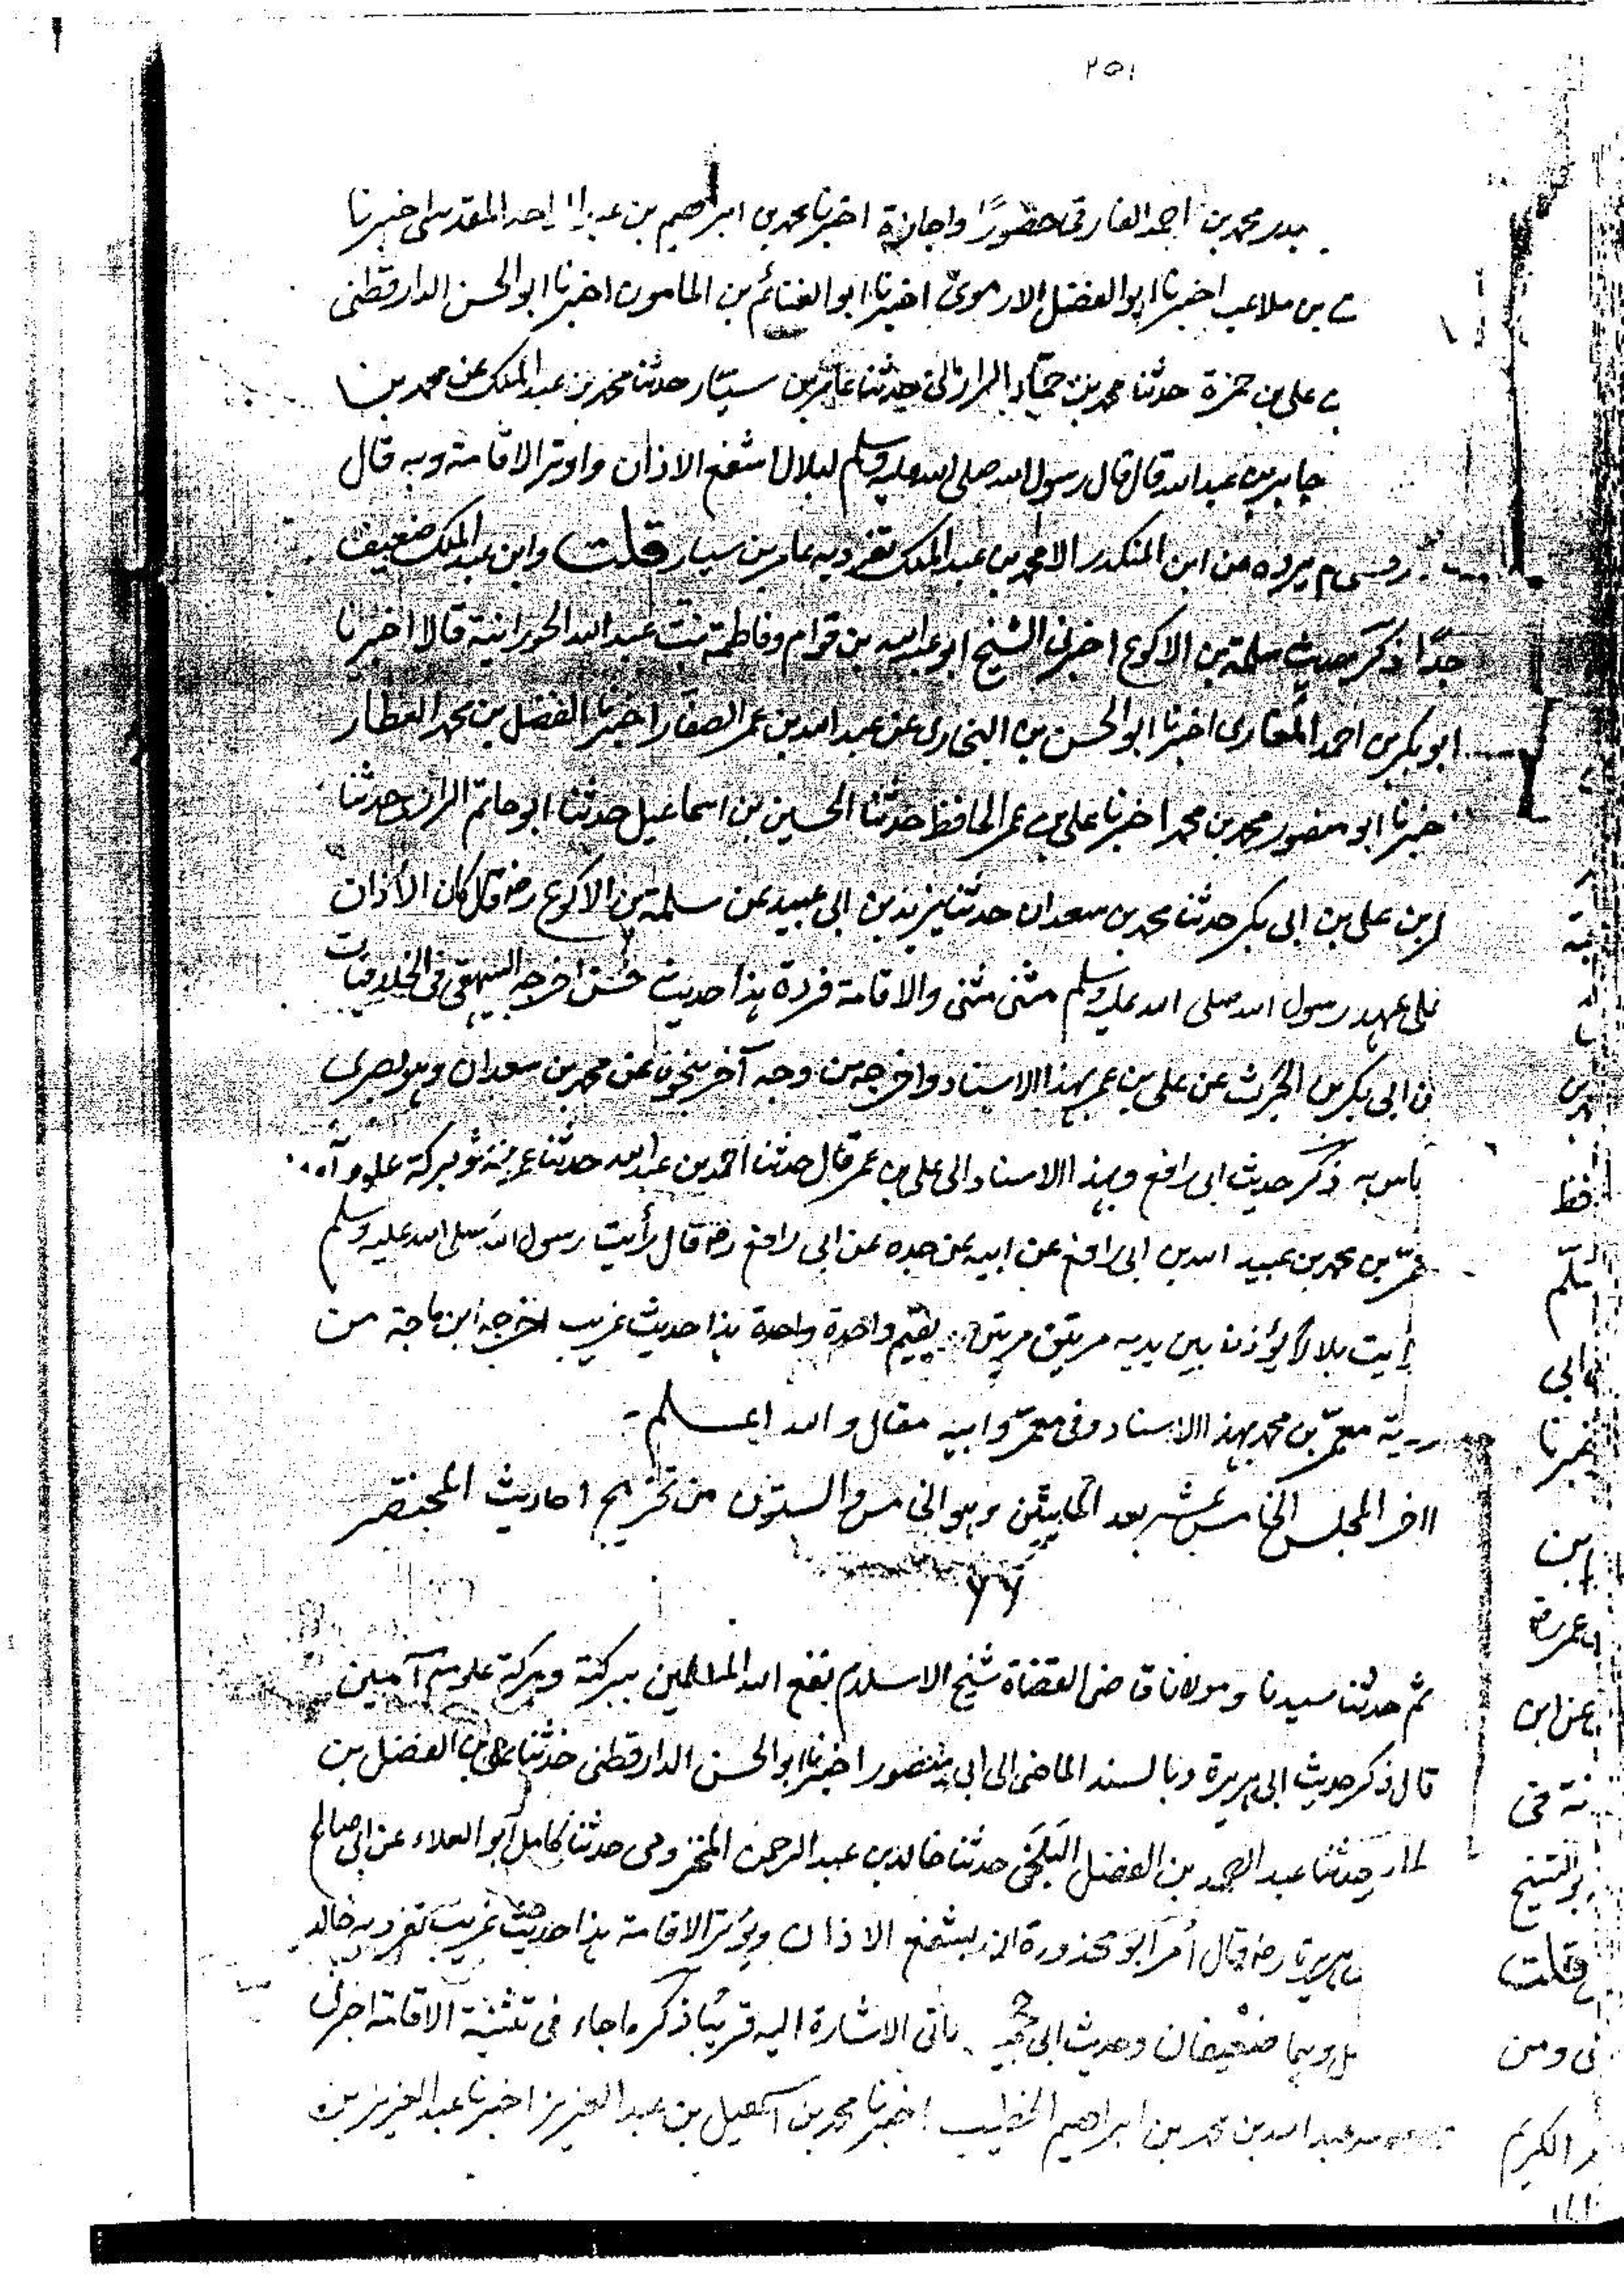 ٢٥١
بدر محمد بن احمد الفارقى حضورًا واجازة اخبرنا محمد بن ابراهيم بن عبد الواحد المقدسى اخبرنا
بن ملاعب اخبرنا ابو الفضل الارموى اخبرنا ابو الغنائم بن المامون اخبرنا ابو الحسن الدارقطنى
على بن حمزة حدثنا محمد بن حماد الرازى حدثنا عامر بن سيار حدثنا محمد بن عبد الملك عن محمد بن
جابر بن عبد الله قال قال رسول الله صلى الله عليه وسلم لبلال اشفع الاذان واوتر الاقامة وبه قال
يروه عن ابن المنكدر الا محمد بن عبد الملك تفرد به عامر بن سيار قلت وابن عبد الملك ضعيف
جدًا ذكر حديث سلمة بن الاكوع اخبرنى الشيخ ابو عبد الله بن قوام وفاطمة بنت عبد الله الحورانية قالا اخبرنا
ابو بكر بن احمد المغارى اخبرنا ابو الحسن بن البخارى عن عبد الله بن عمر الصفار اخبرنا الفضل بن محمد العطار
خبرنا ابو منصور محمد بن محمد اخبرنا على بن عمر الحافظ حدثنا الحسين بن اسماعيل حدثنا ابو حاتم الرازى حدثنا
بن على بن ابى بكر حدثنا محمد بن سعدان حدثنا يزيد بن ابى عبيد عن سلمة بن الاكوع رضـ قال كان الأذان
على عهد رسول الله صلى الله عليه وسلم مثنى مثنى والاقامة فردة هذا حديث حسن اخرجه البيهقى فى الخلافيات
ابى بكر بن الحرث عن على بن عمر بهذا الاسناد واخرجه من وجه آخر نحوه عن محمد بن سعدان وهو بصرى
باس به ذكر حديث ابى رافع وبهذا الاسناد الى على بن عمر قال حدثنا احمد بن عبد الله حدثنا
بن محمد بن عبيد الله بن ابى رافع عن ابيه عن جده عن ابى رافع رضـ قال رأيت رسول الله صلى الله عليه وسلم
رايت بلالا يؤذن بين يديه مرتين مرتين ويقيم واحدة واحدة هذا حديث غريب اخرجه ابن ماجة من
معمر بن محمد بهذا الاسناد وفى معمر وابيه مقال والله اعلم -
اخر المجلس الخامس عشر بعد المايتين وهو الخامس والستون من تخريج احاديث المختصر
٦٦
ثم حدثنا سيدنا ومولانا قاضى القضاة شيخ الاسلام نفع الله المسلمين ببركته وبركة علومه آمين
قال ذكر حديث ابى هريرة وبالسند الماضى الى ابى منصور اخبرنا ابو الحسن الدارقطنى حدثنا على بن الفضل بن
حدثنا عبد الصمد بن الفضل البلخى حدثنا خالد بن عبد الرحمن المخزومى حدثنا كامل ابو العلاء عن ابى صالح
هريرة رضـ قال أمر ابو محذورة ان يشفع الاذان ويوتر الاقامة هذا حديث غريب تفرد به خالد
وهما ضعيفان وحديث ابى ياتى الاشارة اليه قريبًا ذكر ما جاء فى تثنية الاقامة اخبرنى
عبد الله بن محمد بن ابراهيم الخطيب اخبرنا محمد بن اسمعيل بن عبد العزيز اخبرنا عبد العزيز بن
سلم
ابى
خبرنا
ابن
عمرة
عن ابن
الشيخ
قلت
ومن
الكريم